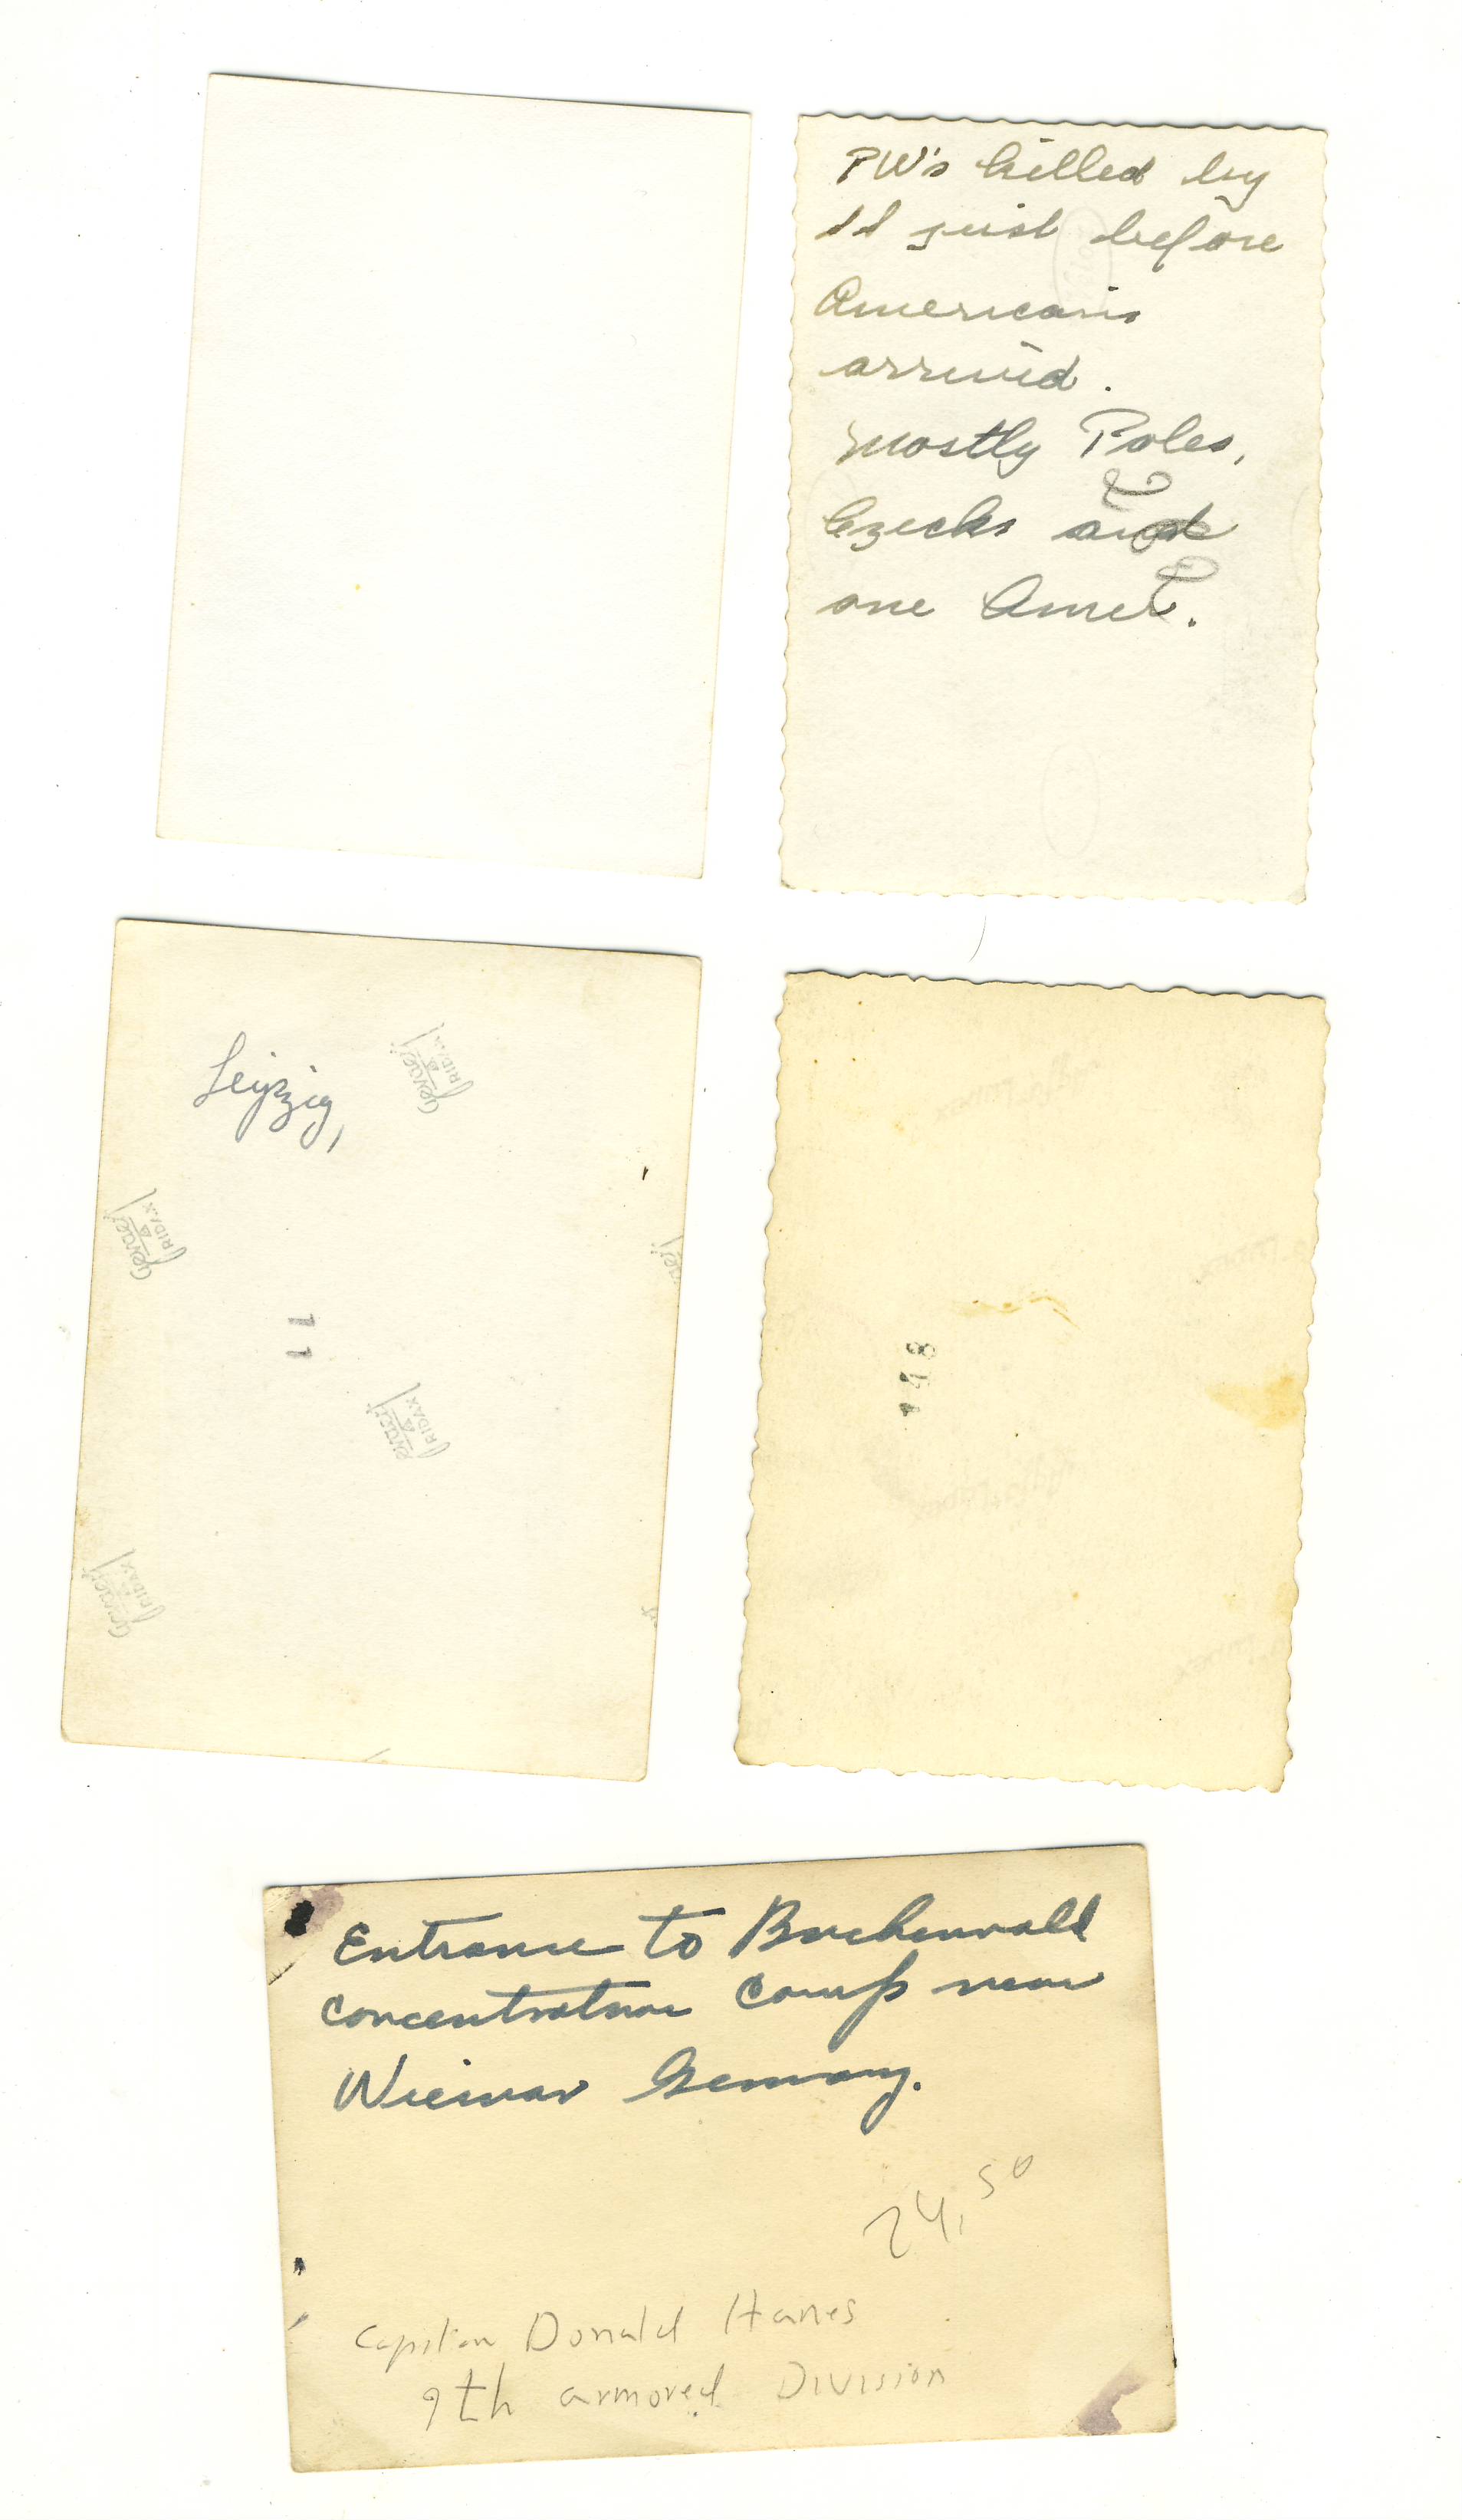 PW's killed by
SS just before
Americans
arrived.
Mostly Poles,
Czecks and
one Amer.
Leipzig,
Gevaert
RIDAX
Gevaert
RIDAX
11
Gevaert
RIDAX
Gevaert
RIDAX
148
Entrance to Buchenwald
concentration camp near
Wiemar Germany.
24.50
Captain Donald Hanes
9th armored Division